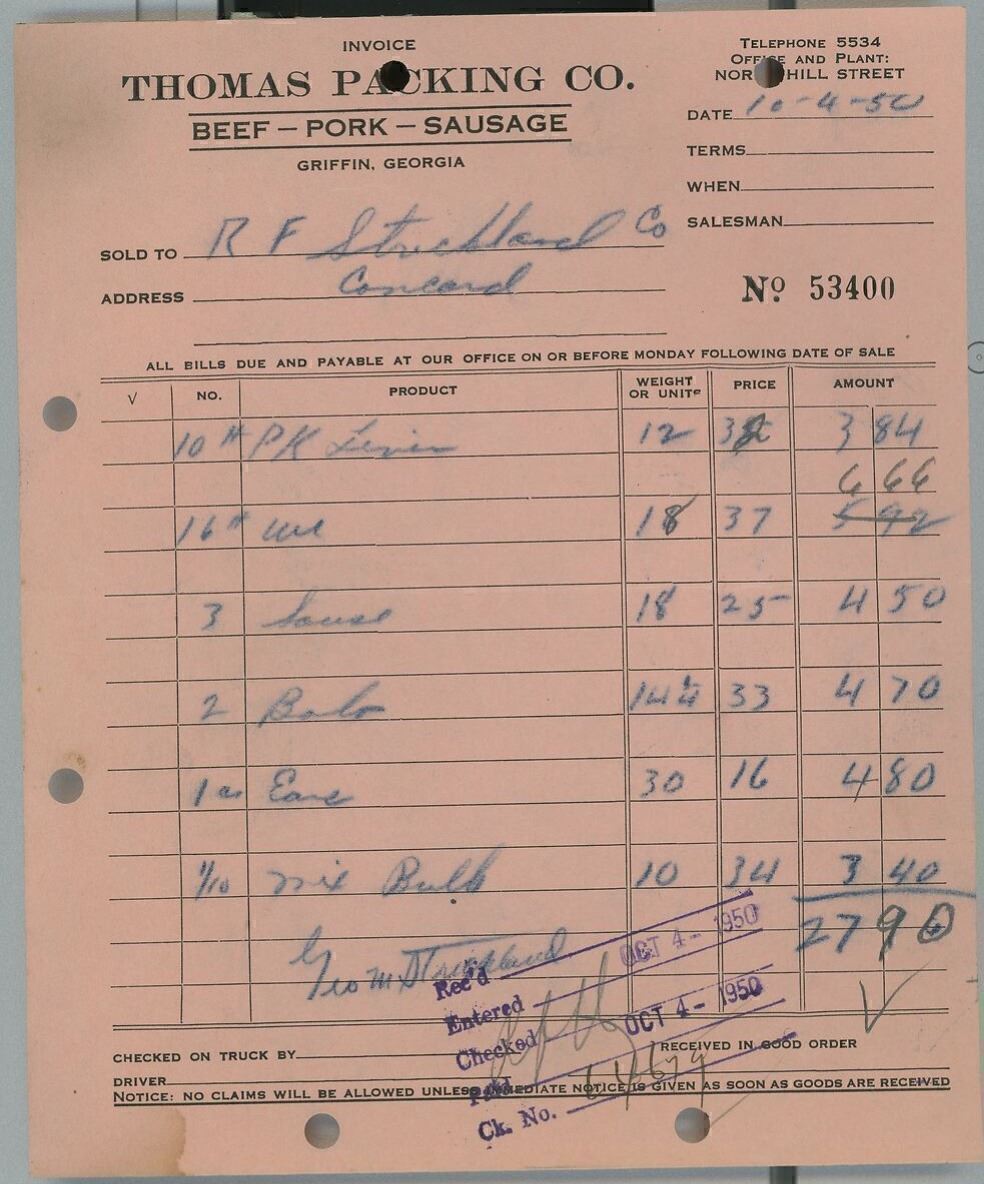 INVOICE
THOMAS PACKING CO.
BEEF – PORK – SAUSAGE
GRIFFIN, GEORGIA
TELEPHONE 5534
OFFICE AND PLANT:
NORTH HILL STREET
DATE 10-4-50
TERMS
WHEN
SALESMAN
SOLD TO R F Strickland Co
ADDRESS Concord
Nº 53400
ALL BILLS DUE AND PAYABLE AT OUR OFFICE ON OR BEFORE MONDAY FOLLOWING DATE OF SALE
√ NO. PRODUCT WEIGHT OR UNITS PRICE AMOUNT
10# PK Liver 12 32 3 84
6 66
16# 18 37 5 92
3 Souse 18 25 4 50
2 14 1/4 33 4 70
1 30 16 4 80
1/10 Mix Bulk 10 34 3 40
27 90
Geo M Strickland
Rec'd OCT 4 - 1950
Entered
Checked OCT 4 - 1950
Paid
Ck. No. 14679
CHECKED ON TRUCK BY
RECEIVED IN GOOD ORDER
DRIVER
NOTICE: NO CLAIMS WILL BE ALLOWED UNLESS IMMEDIATE NOTICE IS GIVEN AS SOON AS GOODS ARE RECEIVED